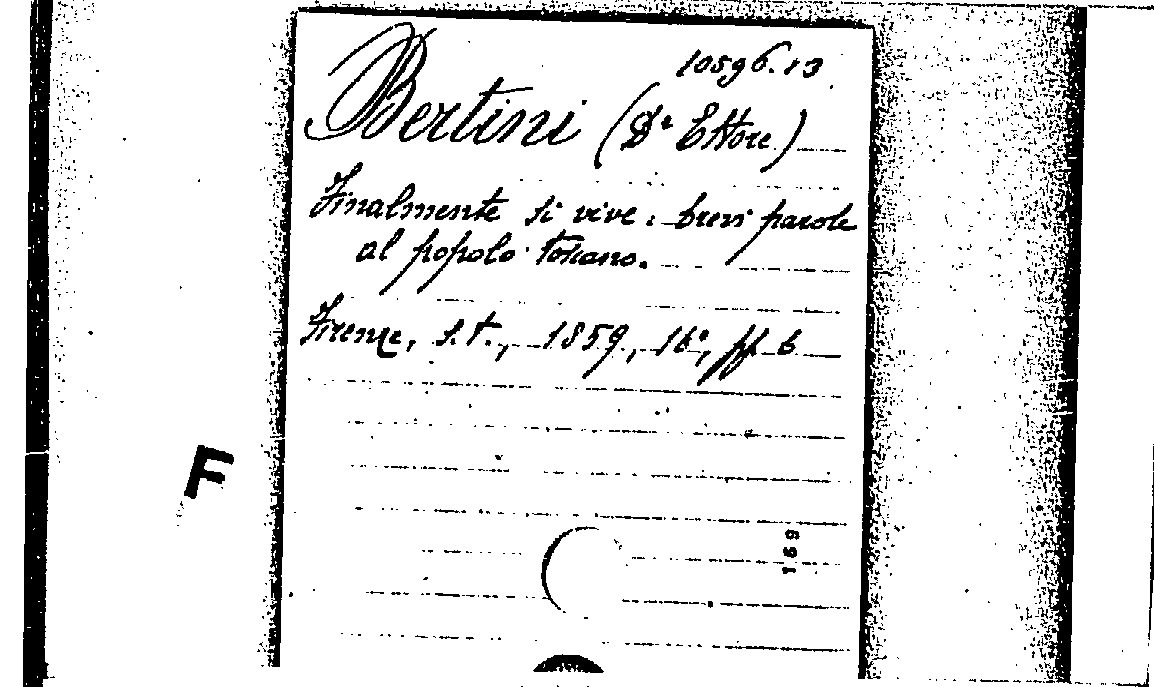 10596.13
Bertini (Dr Ettore)
Finalmente si vive: brevi parole
al popolo toscano.
Firenze, s.t., 1859, 16°, pp. 6
F
169